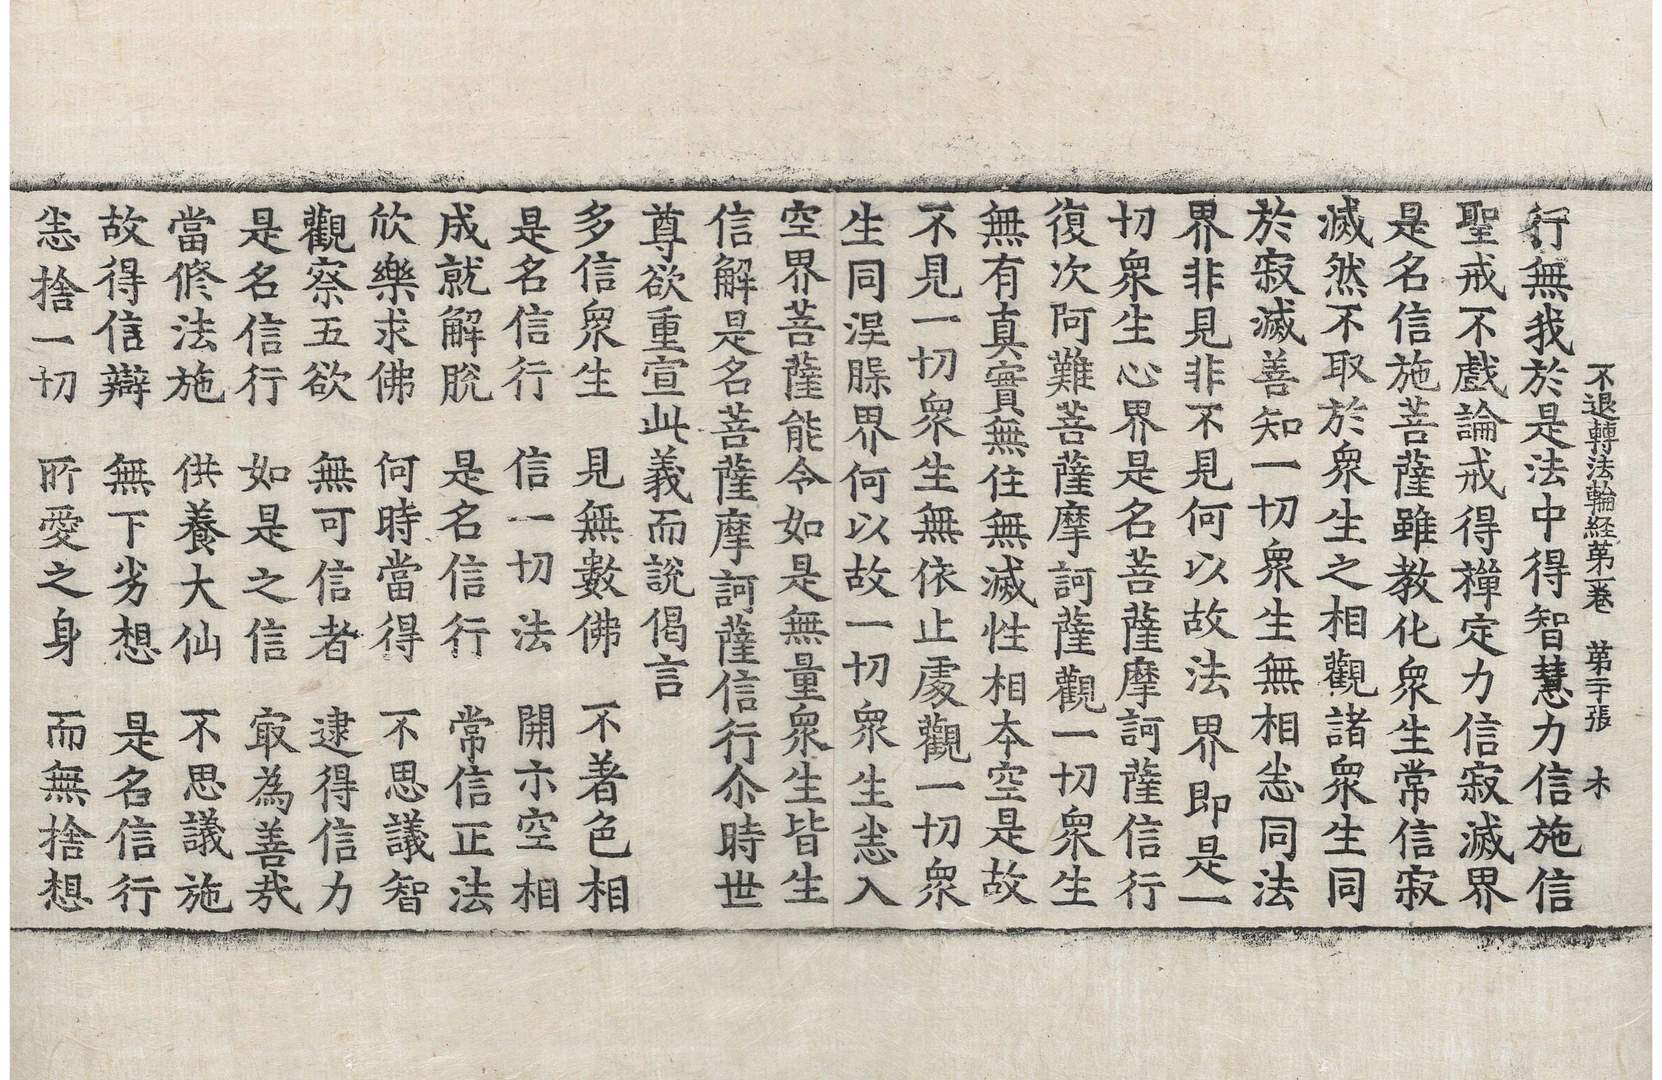 不退轉法輪経第一巻　第二十張　木
行無我於是法中得智慧力信施信
聖戒不戲論戒得禪定力信寂滅界
是名信施菩薩雖教化衆生常信寂
滅然不取於衆生之相觀諸衆生同
於寂滅善知一切衆生無相恙同法
界非見非不見何以故法界即是一
切衆生心界是名菩薩摩訶薩信行
復次阿難菩薩摩訶薩觀一切衆生
無有真實無住無滅性相本空是故
不見一切衆生無依止處觀一切衆
生同涅槃界何以故一切衆生恙入
空界菩薩能令如是無量衆生皆生
信解是名菩薩摩訶薩信行尒時世
尊欲重宣此義而說偈言
多信衆生　見無數佛　不著色相
是名信行　信一切法　開示空相
成就解脫　是名信行　常信正法
欣樂求佛　何時當得　不思議智
觀察五欲　無可信者　逮得信力
是名信行　如是之信　㝡為善哉
當修法施　供養大仙　不思議施
故得信辯　無下劣想　是名信行
恙捨一切　所愛之身　而無捨想